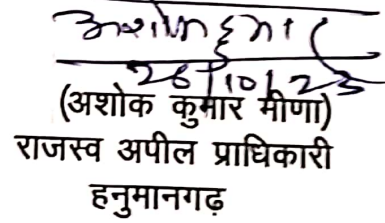 अशोक कुमार
26/10/23
(अशोक कुमार मीणा)
राजस्व अपील प्राधिकारी
हनुमानगढ़